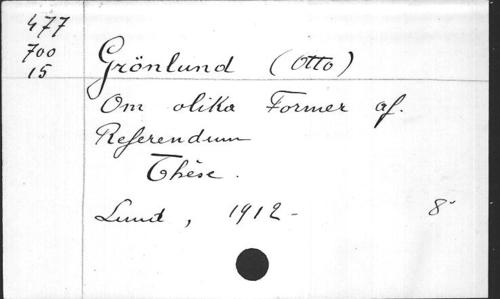 477
700
15
Grönlund (Otto)
Om olika Former af.
Referendum
Thèse.
Lund, 1912-
8°